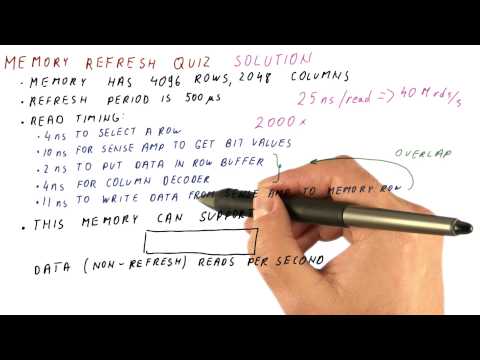 MEMORY REFRESH QUIZ SOLUTION
• MEMORY HAS 4096 ROWS, 2048 COLUMNS
• REFRESH PERIOD IS 500 µs
25 ns/read => 40 M rds/s
• READ TIMING:
2000 x
• 4 ns TO SELECT A ROW
• 10 ns FOR SENSE AMP TO GET BIT VALUES
• 2 ns TO PUT DATA IN ROW BUFFER
OVERLAP
• 4 ns FOR COLUMN DECODER
• 11 ns TO WRITE DATA FROM SENSE AMP TO MEMORY ROW
• THIS MEMORY CAN SUPPORT
DATA (NON-REFRESH) READS PER SECOND